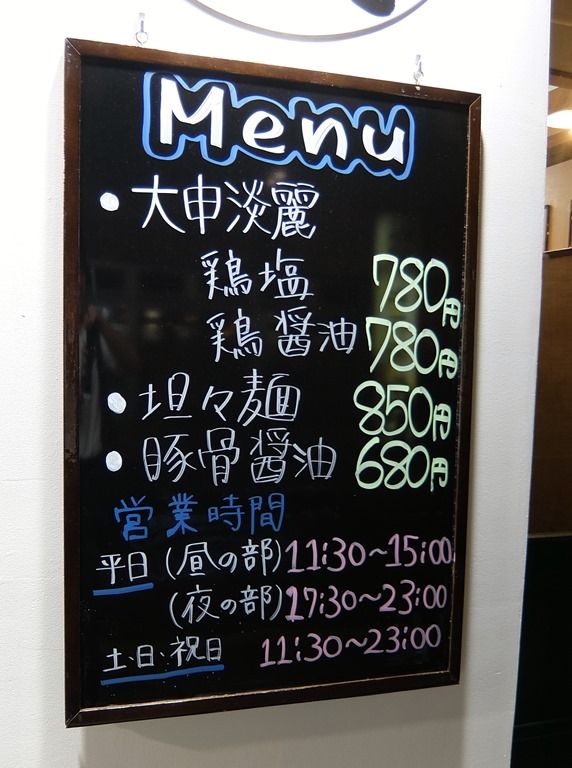 Menu
• 大申淡麗
鶏塩 780円
鶏醤油 780円
• 坦々麺 850円
• 豚骨醤油 680円
営業時間
平日 (昼の部) 11:30～15:00
(夜の部) 17:30～23:00
土・日・祝日 11:30～23:00